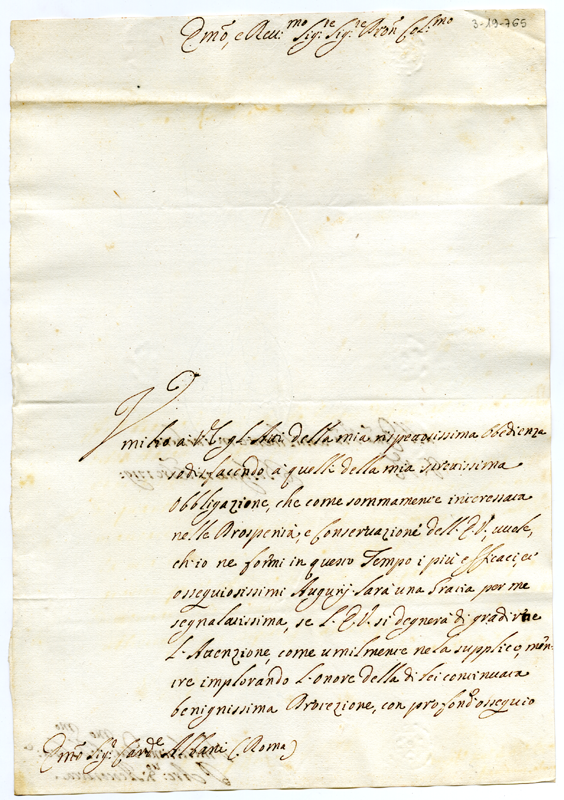 3-19-765
Emo, e Reu:mo Sig:re Sig:re Pron Col:mo
Umilio a V.E. gl'Atti della mia rispettosissima Obedienza
sodisfacendo à quelle della mia strettissima
Obbligazione, che come sommamente interessata
nelle Prosperità, e Conservazione dell'E.V., vuole,
ch'io ne formi in questo Tempo i più efficaci, ed
ossequiosissimi Augurij. Sarà una Gracia per me
segnalatissima, se l'E.V. si degnerà di gradirne
l'Attenzione come umilmente ne la supplico, men-
tre implorando l'onore della di lei continuata
benignissima Protezione, con profond'ossequio
Emo Sig:r Card:e Albani (Roma)